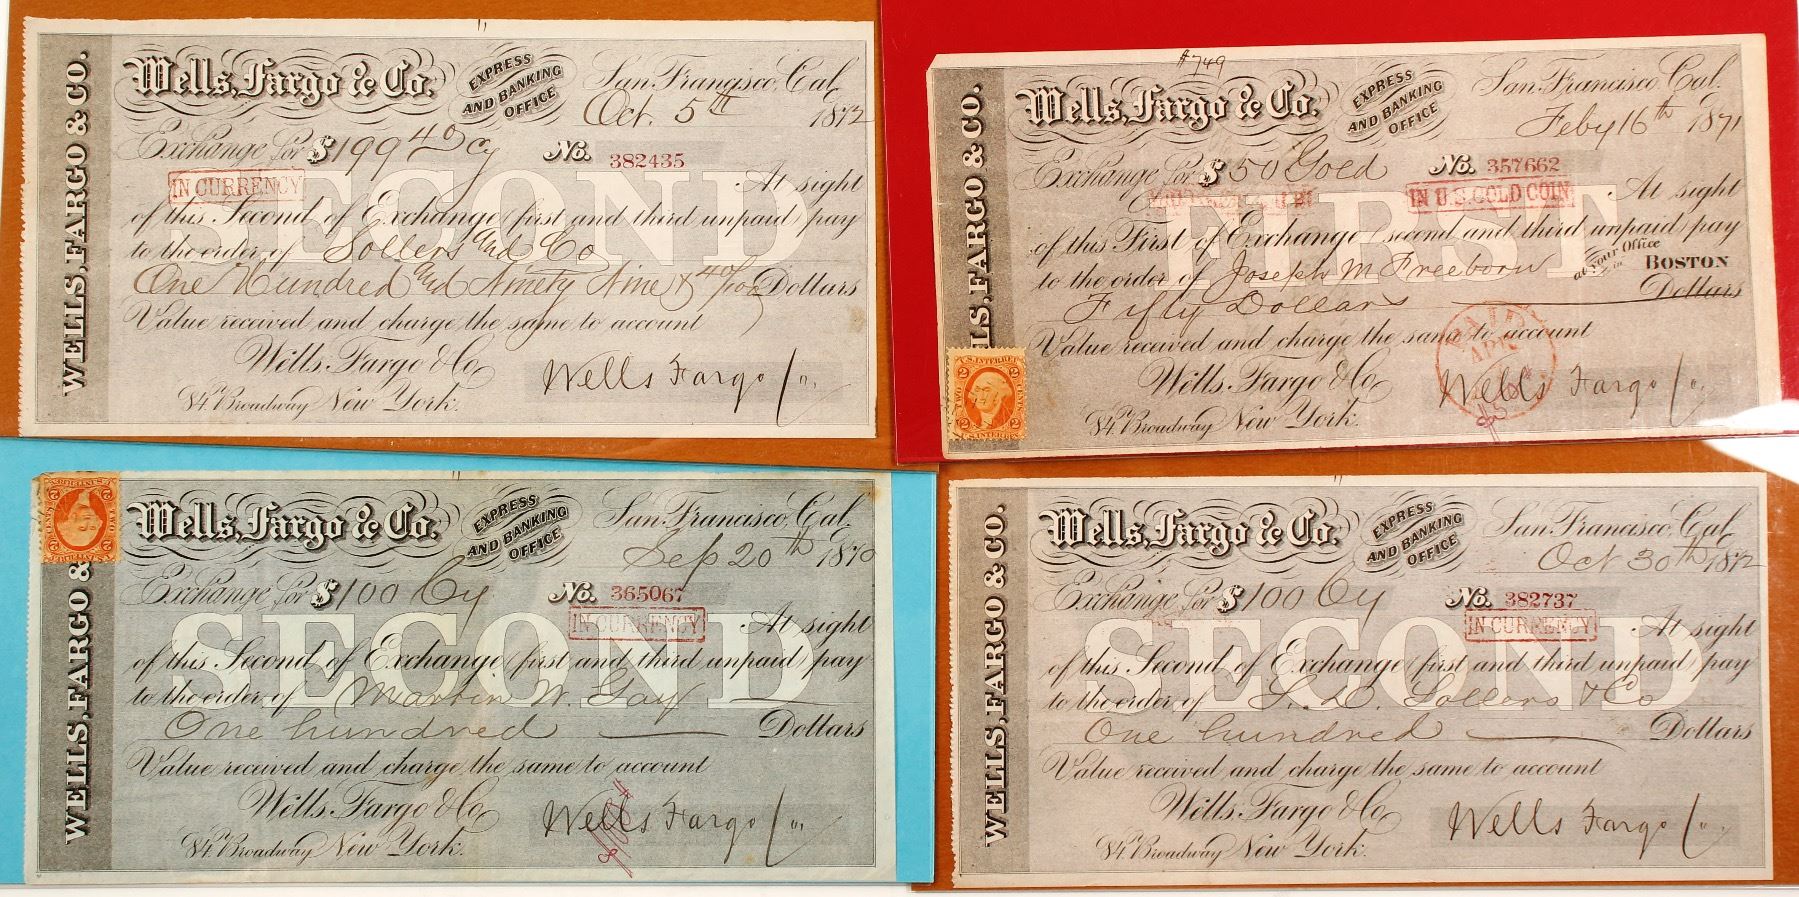 WELLS, FARGO & CO.
Wells, Fargo & Co. EXPRESS AND BANKING OFFICE San Francisco, Cal.
Oct. 5th 1872
Exchange for $199 40 Cy No. 382435
IN CURRENCY
SECOND
At sight
of this Second of Exchange (first and third unpaid) pay
to the order of Sollers and Co
One Hundred and Ninety Nine & 40/100 Dollars
Value received and charge the same to account
Wells, Fargo & Co
84 Broadway New York. Wells Fargo Co.
#749
WELLS, FARGO & CO.
Wells, Fargo & Co. EXPRESS AND BANKING OFFICE San Francisco, Cal.
Feby 16th 1871
Exchange for $50 Gold No. 357662
IN U.S. GOLD COIN
FIRST
At sight
of this First of Exchange (second and third unpaid) pay
to the order of Joseph M Freeborn at your Office in BOSTON
Fifty Dollars Dollars
Value received and charge the same to account
PAID
APR
Wells, Fargo & Co
84 Broadway New York. Wells Fargo Co.
U.S. INTER. REV.
2 2
TWO CENTS
2 2
WELLS, FARGO &
Wells, Fargo & Co. EXPRESS AND BANKING OFFICE San Francisco, Cal.
Sep 20th 1870
Exchange for $100 Cy No. 365067
IN CURRENCY
SECOND
At sight
of this Second of Exchange (first and third unpaid) pay
to the order of Marvin W. Gay
One hundred Dollars
Value received and charge the same to account
Wells, Fargo & Co
84 Broadway New York. Wells Fargo Co.
WELLS, FARGO & CO.
Wells, Fargo & Co. EXPRESS AND BANKING OFFICE San Francisco, Cal.
Oct 30th 1872
Exchange for $100 Cy No. 382737
IN CURRENCY
SECOND
At sight
of this Second of Exchange (first and third unpaid) pay
to the order of S. D. Sollers & Co
One hundred Dollars
Value received and charge the same to account
Wells, Fargo & Co
84 Broadway New York. Wells Fargo Co.